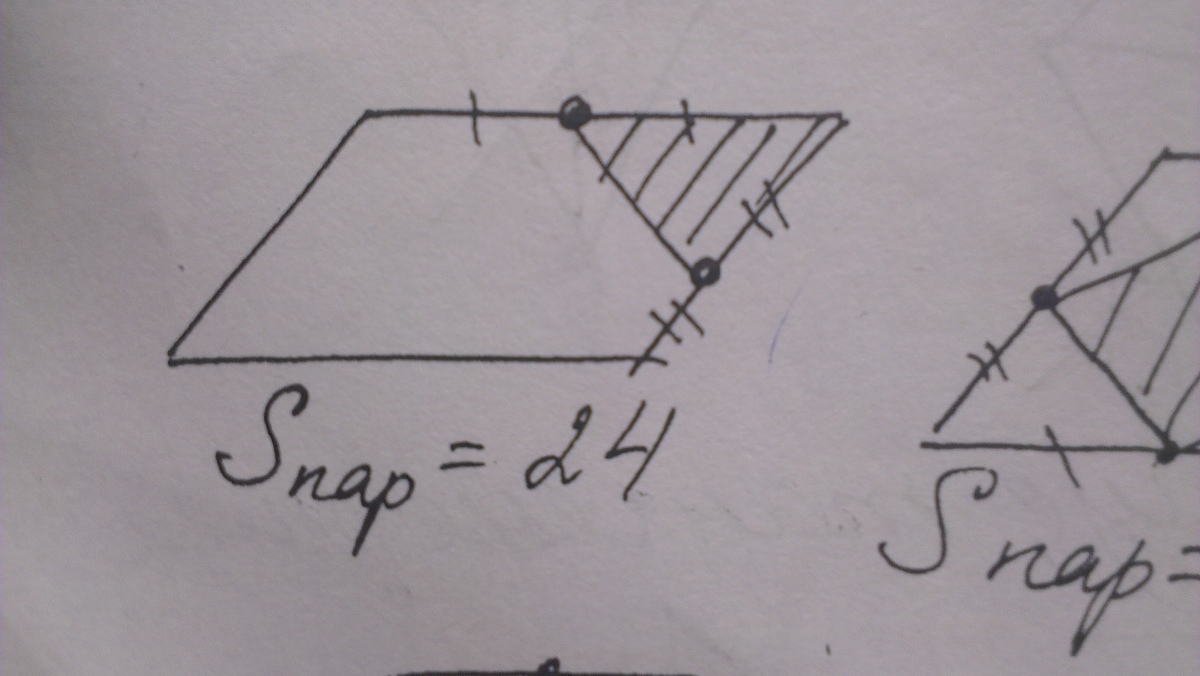 Sпар = 24
Sпар =